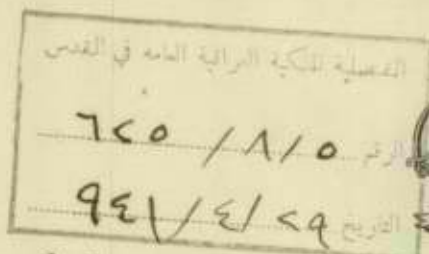 القنصلية الملكية العراقية العامه في القدس
الرقم ٥/٨/ ٦٢٥
التاريخ ٢٩/٤/ ٩٤١